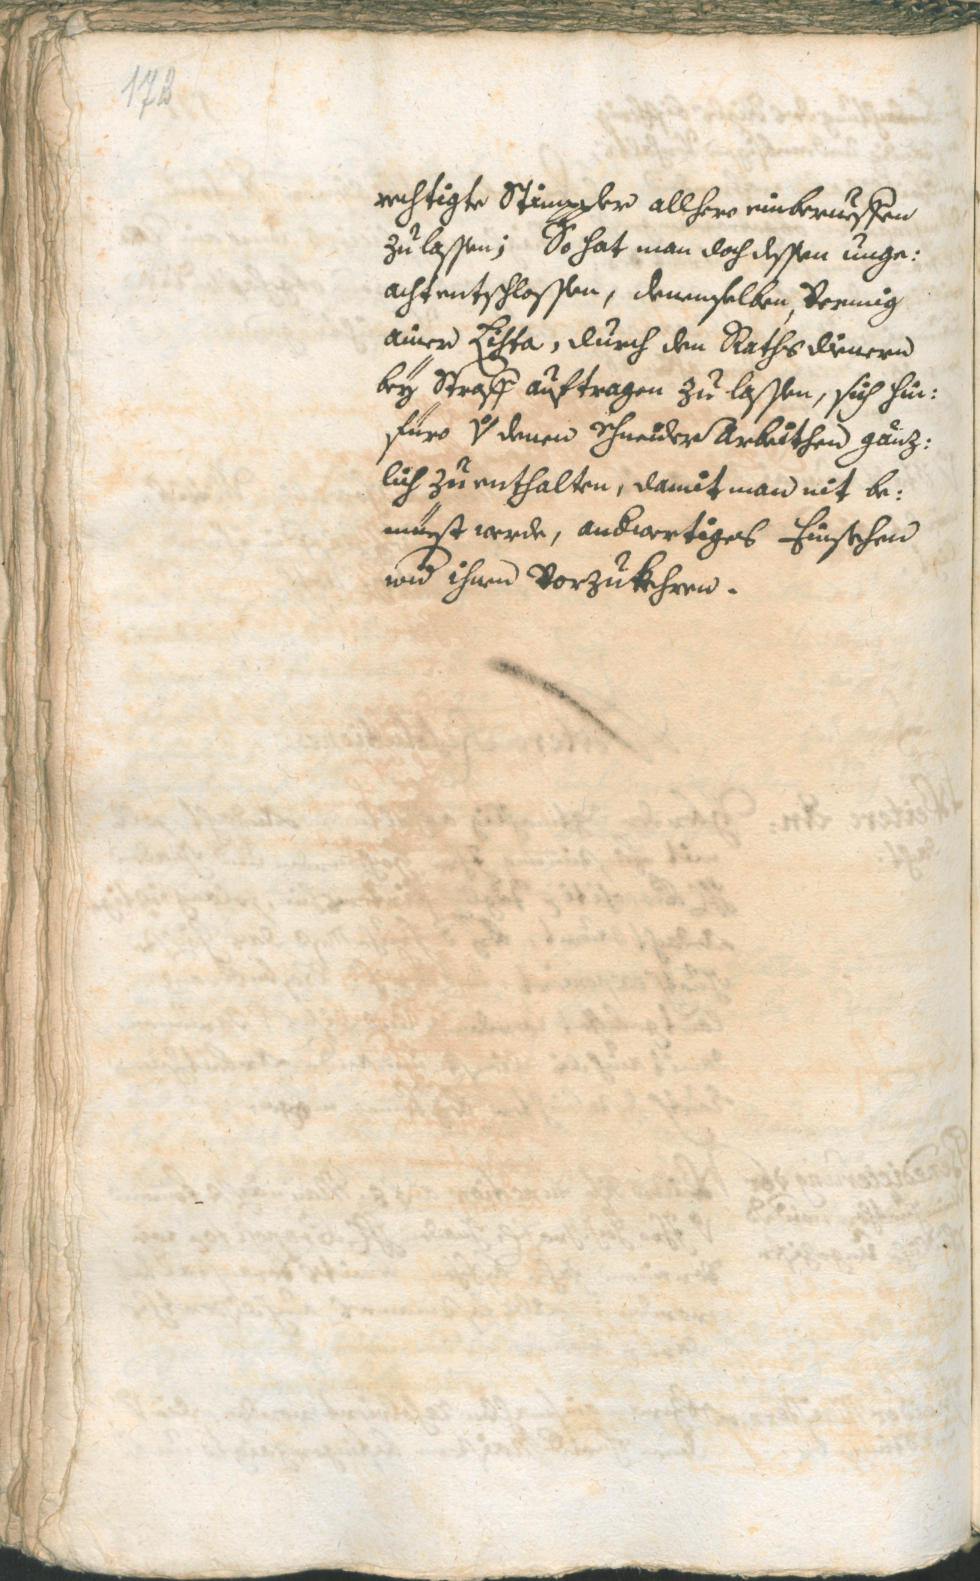 172
rechtigte Stimpler allhero einberueffen
zu lassen; So hat man doch dessen unge:
acht entschlossen, denenselben, Vermig
ainer Lista, durch den Raths dienern
beÿ Straff auftragen zu lassen, sich hin:
füro denen Schneider Arbeithen gänz:
lich zu enthalten, damit man nit be:
müest werde, anderwertiges Einsehen
wid ihnen Vorzukehren.